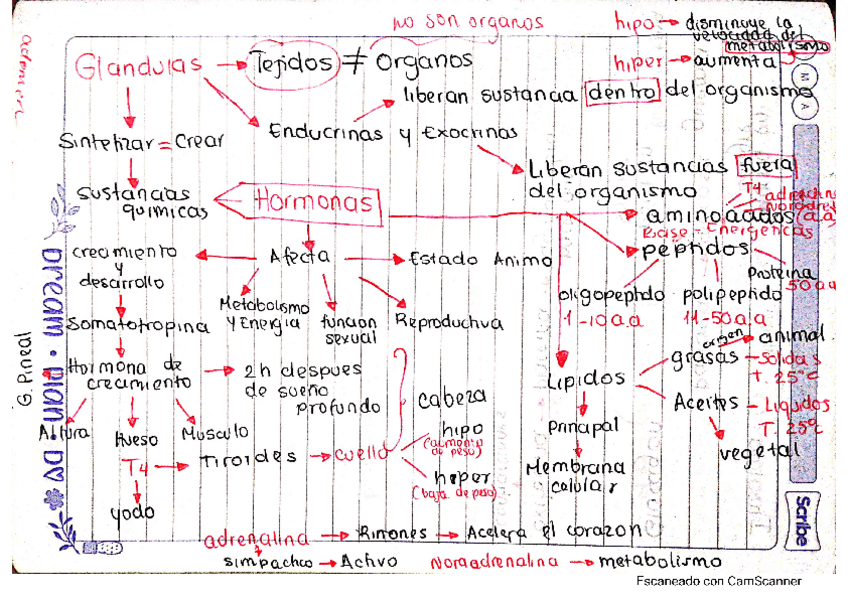 no son organos
hipo → disminuye la
velocidad del
metabolismo
hiper → aumenta
Glandulas → Tejidos ≠ organos
liberan sustancia dentro del organismo
Sintetizar = Crear
Enducrinas y Exocrinas
Liberan sustancias fuera
del organismo
sustancias
quimicas
Hormonas
T4
aminoacidos (a.a)
Base - Energencias
peptidos
Proteina
50 a.a
oligopeptido
1-10 a.a
polipeptido
11-50 a.a
crecimiento
y
desarrollo
Afecta
Estado Animo
Metabolismo
y Energia
funcion
sexual
Reproductiva
Somatotropina
Hormona de
crecimiento
2h despues
de sueño
profundo
Altura
Hueso
Musculo
T4 → Tiroides → cuello
yodo
cabeza
hipo
(aumento
de peso)
hiper
(baja de peso)
Lipidos
grasas
origen
animal
solidas
T. 25°C
Aceites - Liquidos
T 25°C
vegetal
Principal
Membrana
celular
adrenalina → Rinones → Acelera el corazon
simpatico → Activo
Noraadrenalina → metabolismo
G. Pineal
DREAM · PLAN · DO
Scribe
Escaneado con CamScanner